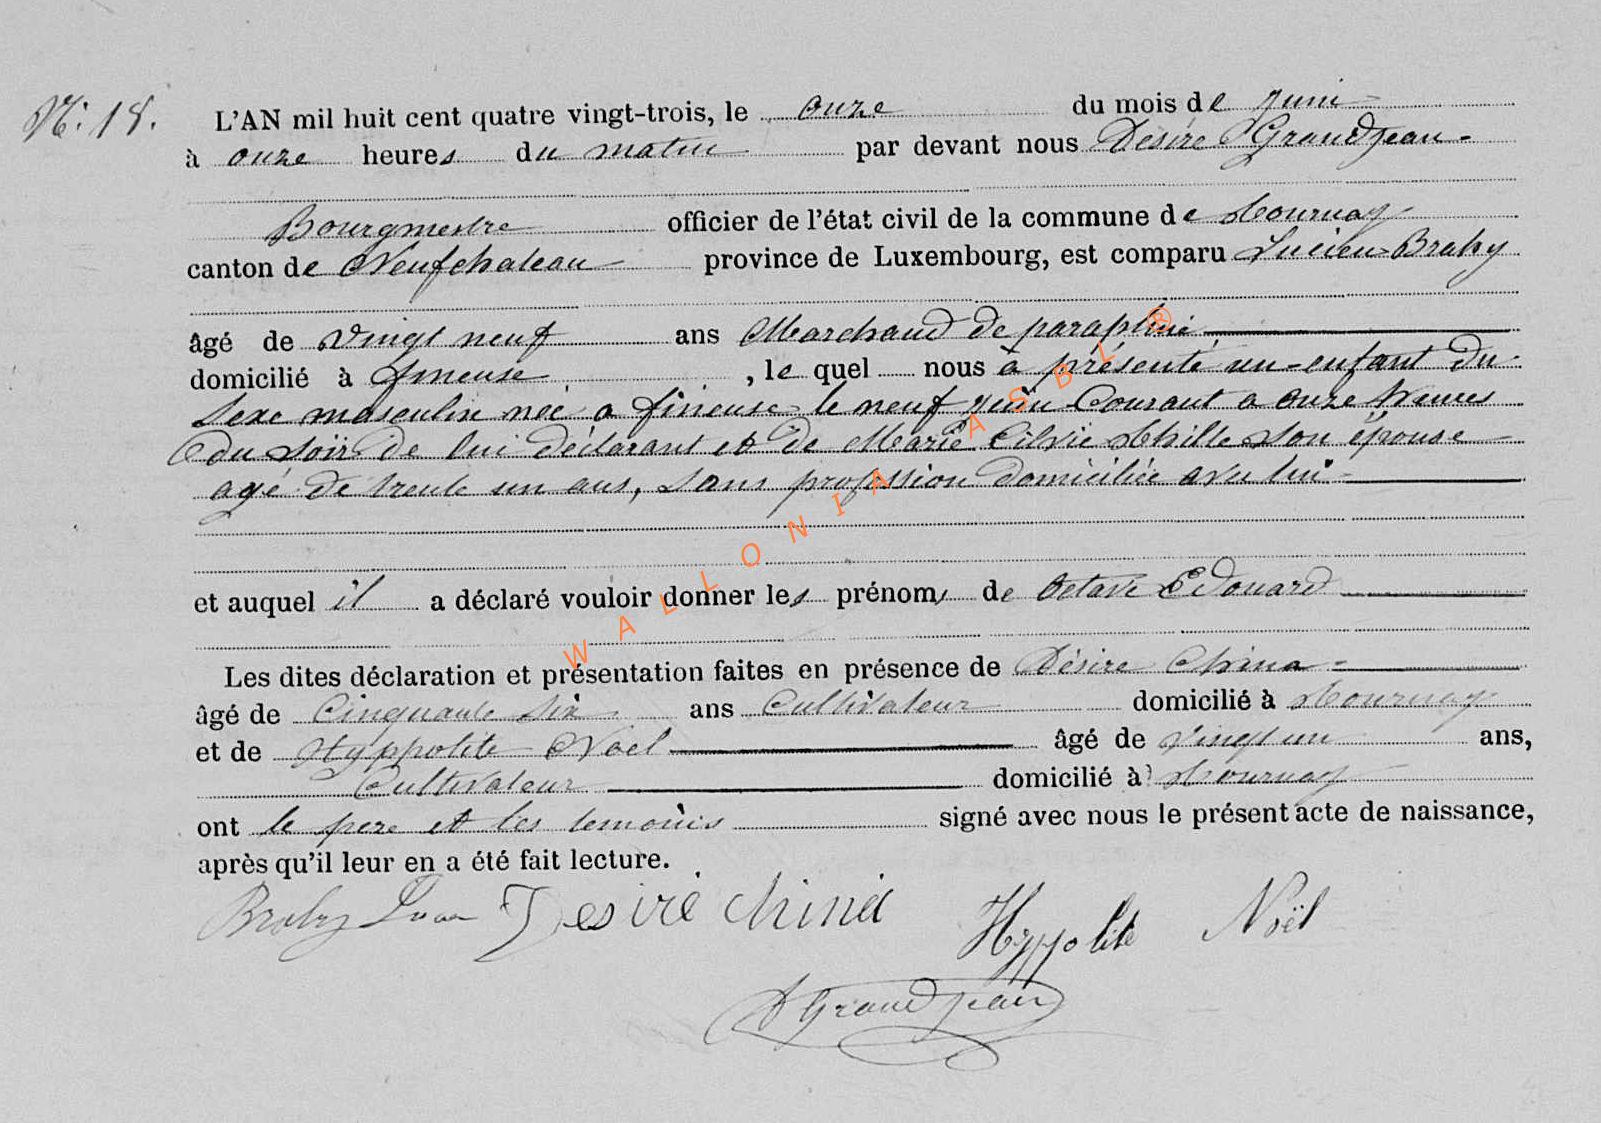 N: 18.
L'AN mil huit cent quatre vingt-trois, le onze du mois de Juin
à onze heures du matin par devant nous Désiré Grandjean
Bourgmestre officier de l'état civil de la commune de Tournay
canton de Neufchateau province de Luxembourg, est comparu Lucien Brahy
âgé de vingt neuf ans Marchand de parapluie
domicilié à Fineuse, le quel nous à présenté un enfant du
Sexe masculin née a fineuse le neuf Juin Courant a onze heures
du soir de lui déclarant et de Marie Silvie Thille son épouse
agé de trente un ans, sans profession domiciliée avec lui
et auquel il a déclaré vouloir donner les prénoms de Octave Edouard
Les dites déclaration et présentation faites en présence de Désiré China
âgé de Cinquante Six ans Cultivateur domicilié à Tournay
et de Hyppolite Noël âgé de vingt un ans,
Cultivateur domicilié à Tournay
ont le pere et les temoins signé avec nous le présent acte de naissance,
après qu'il leur en a été fait lecture.
Brahy Desiré China Hyppolite Noël
D Grandjean
WALLONIA ASBL ®